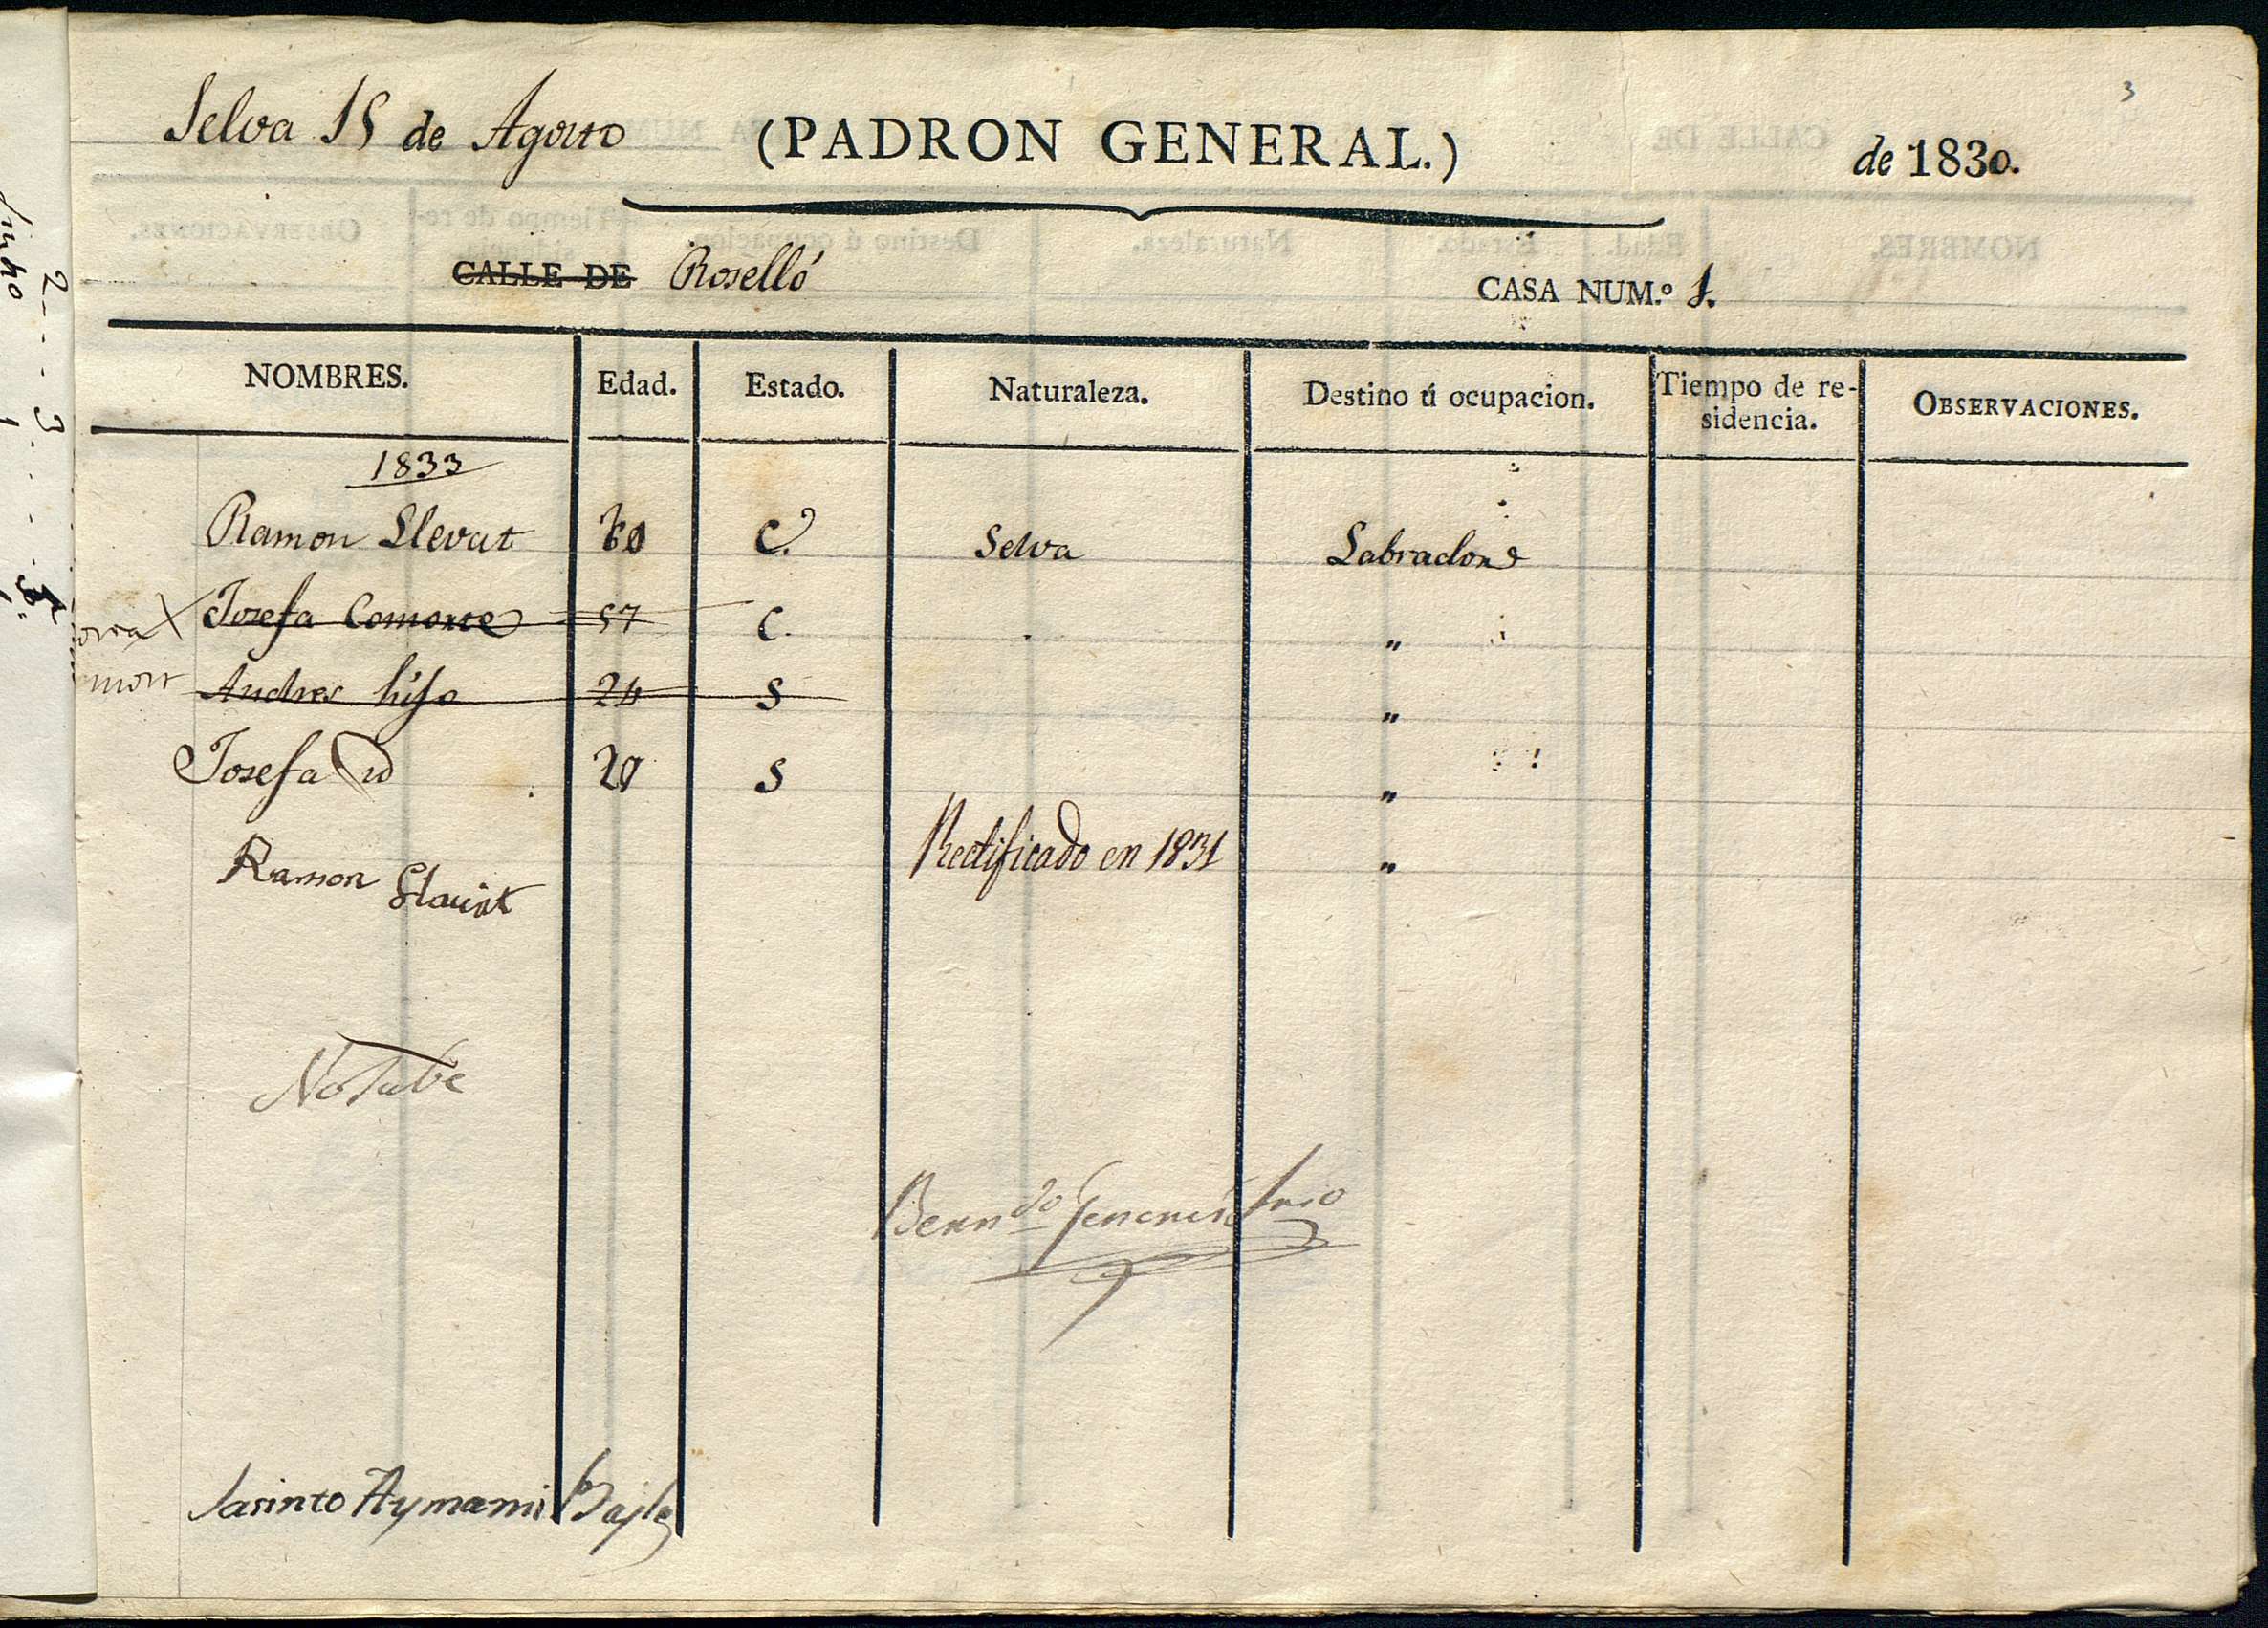 3
Selva 15 de Agosto (PADRON GENERAL.) de 1830.
CALLE DE Roselló CASA NUM.º 1.
NOMBRES. Edad. Estado. Naturaleza. Destino ú ocupacion. Tiempo de re-sidencia. OBSERVACIONES.
1833
Ramon Llevat 60 C. Selva Labrador
Josefa Comorte 57 C. "
mort Andres hijo 24 S "
Josefa id 20 S "
Rectificado en 1831 "
Ramon Llauirt
No Sabe
Bern.do Srio
Jasinto Aymami Bayle